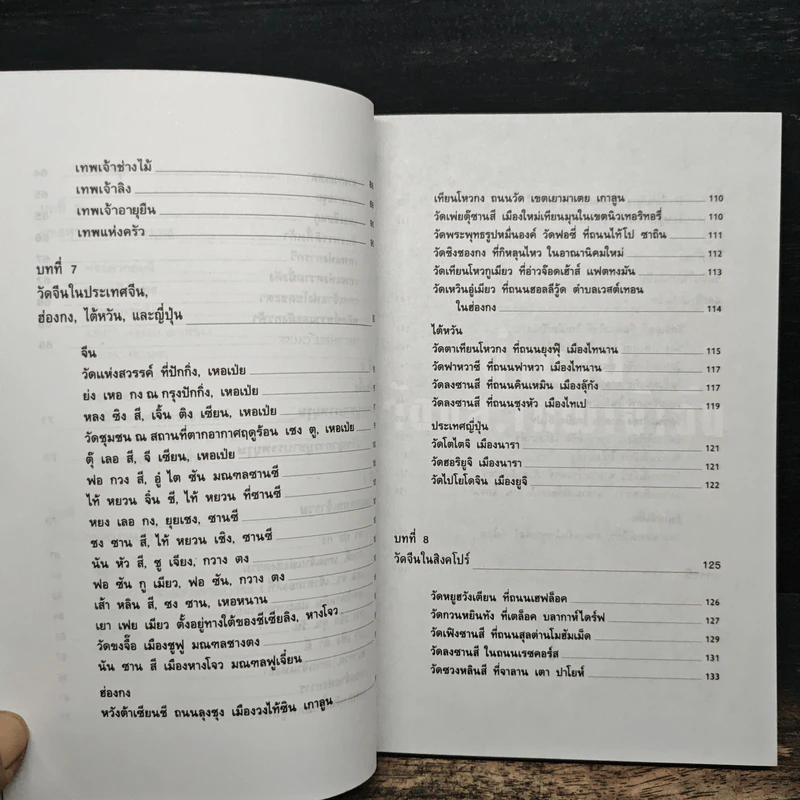 เทพเจ้าช่างไม้
เทพเจ้าลิง
เทพเจ้าอายุยืน
เทพแห่งครัว
บทที่ 7
วัดจีนในประเทศจีน,
ฮ่องกง, ไต้หวัน, และญี่ปุ่น
จีน
วัดแห่งสวรรค์ ที่ปักกิ่ง, เหอเป่ย
ย่ง เหอ กง ณ กรุงปักกิ่ง, เหอเป่ย
หลง ซิง สี, เจิ้น ติง เซียน, เหอเป่ย
วัดชุมชน ณ สถานที่ตากอากาศฤดูร้อน เชง ตู, เหอเป่ย
ตุ๊ เลอ สี, จี เซียน, เหอเป่ย
ฟอ กวง สี, อู่ ไต ซัน มณฑลซานซี
ไท้ หยวน จิ่น ซี, ไท้ หยวน ที่ซานซี
หยง เลอ กง, ยุยเชง, ซานซี
ซง ซาน สี, ไท้ หยวน เชิง, ซานซี
นัน หัว สี, ชู เจียง, กวาง ตง
ฟอ ซัน กู เมียว, ฟอ ซัน, กวาง ตง
เส้า หลิน สี, ซง ซาน, เหอหนาน
เยา เฟย เมียว ตั้งอยู่ทางใต้ของซีเซียลิง, หางโจว
วัดขงจื๊อ เมืองชูฟู มณฑลชางตง
นัน ซาน สี เมืองหางโจว มณฑลฟูเจี่ยน
ฮ่องกง
หวังต้าเซียนซี ถนนลุงชุง เมืองวงไท้ซิน เกาลูน
เทียนโหวกง ถนนวัด เขตเยามาเตย เกาลูน 110
วัดเพ่ยตุ๊ซานสี เมืองใหม่เทียนมุนในเขตนิวเทอริทอรี่ 110
วัดพระพุทธรูปหมื่นองค์ วัดฟอซี่ ที่ถนนไท้โป ซาถิน 111
วัดซิงซองกง ที่กิหลุนไหว ในอาณานิคมใหม่ 112
วัดเทียนโหวกูเมียว ที่อ่าวจ็อดเฮ้าส์ แฟตทงมัน 113
วัดเหวินอู่เมียว ที่ถนนฮอลลีวู้ด ตำบลเวสต์เทอน
ในฮ่องกง 114
ไต้หวัน
วัดตาเทียนโหวกง ที่ถนนยุงฟุ๊ เมืองไทนาน 115
วัดฟาหวาซี ที่ถนนฟาหวา เมืองไทนาน 117
วัดลงซานสี ที่ถนนคินเหมิน เมืองลุ๊กัง 117
วัดลงซานสี ที่ถนนชุงหัว เมืองไทเป 119
ประเทศญี่ปุ่น
วัดโตไตจิ เมืองนารา 121
วัดฮอริยูจิ เมืองนารา 121
วัดไปโยโดจิน เมืองยูจิ 122
บทที่ 8
วัดจีนในสิงคโปร์ 125
วัดหยูฮวังเตียน ที่ถนนเฮฟล็อค 126
วัดกวนหยินทัง ที่เตล็อค บลากาห์ไดร์ฟ 127
วัดเฟิงซานสี ที่ถนนสุลต่านโมฮัมเม็ด 129
วัดลงซานสี ในถนนเรซคอร์ส 131
วัดซวงหลินสี ที่จาลาน เตา ปาโยห์ 133